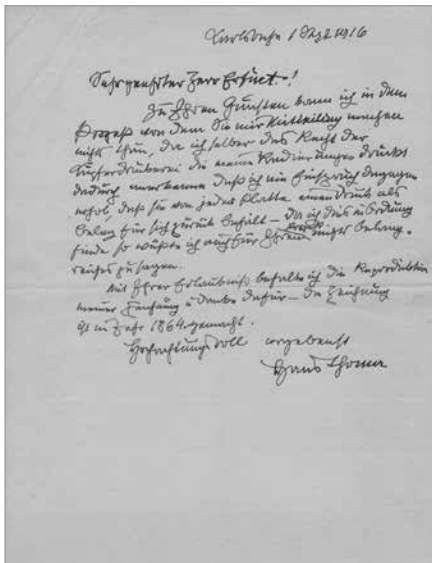 Karlsruhe 1 Sept 1916
Sehr geehrter Herr Erfurt!
Zu Ihren Gunsten kann ich in dem
Prozeß von dem Sie mir Mitteilung machen
nichts thun, da ich selber das Recht der
Kupferdruckerei die meine Radierungen druckt
dadurch anerkenne daß ich nie Einspruch dagegen
erhob, daß sie von jeder Platte einen Druck als
beleg für sich zurück behält – da ich dies in Ordnung
finde so wüßte ich auch für Ihren Prozeß nichts belang-
reiches zu sagen.
Mit Ihrer Erlaubniß behalte ich die Reproduktion
meiner Zeichnung u danke dafür – die Zeichnung
ist im Jahr 1864 gemacht.
Hochachtungsvoll ergebenst
Hans Thoma